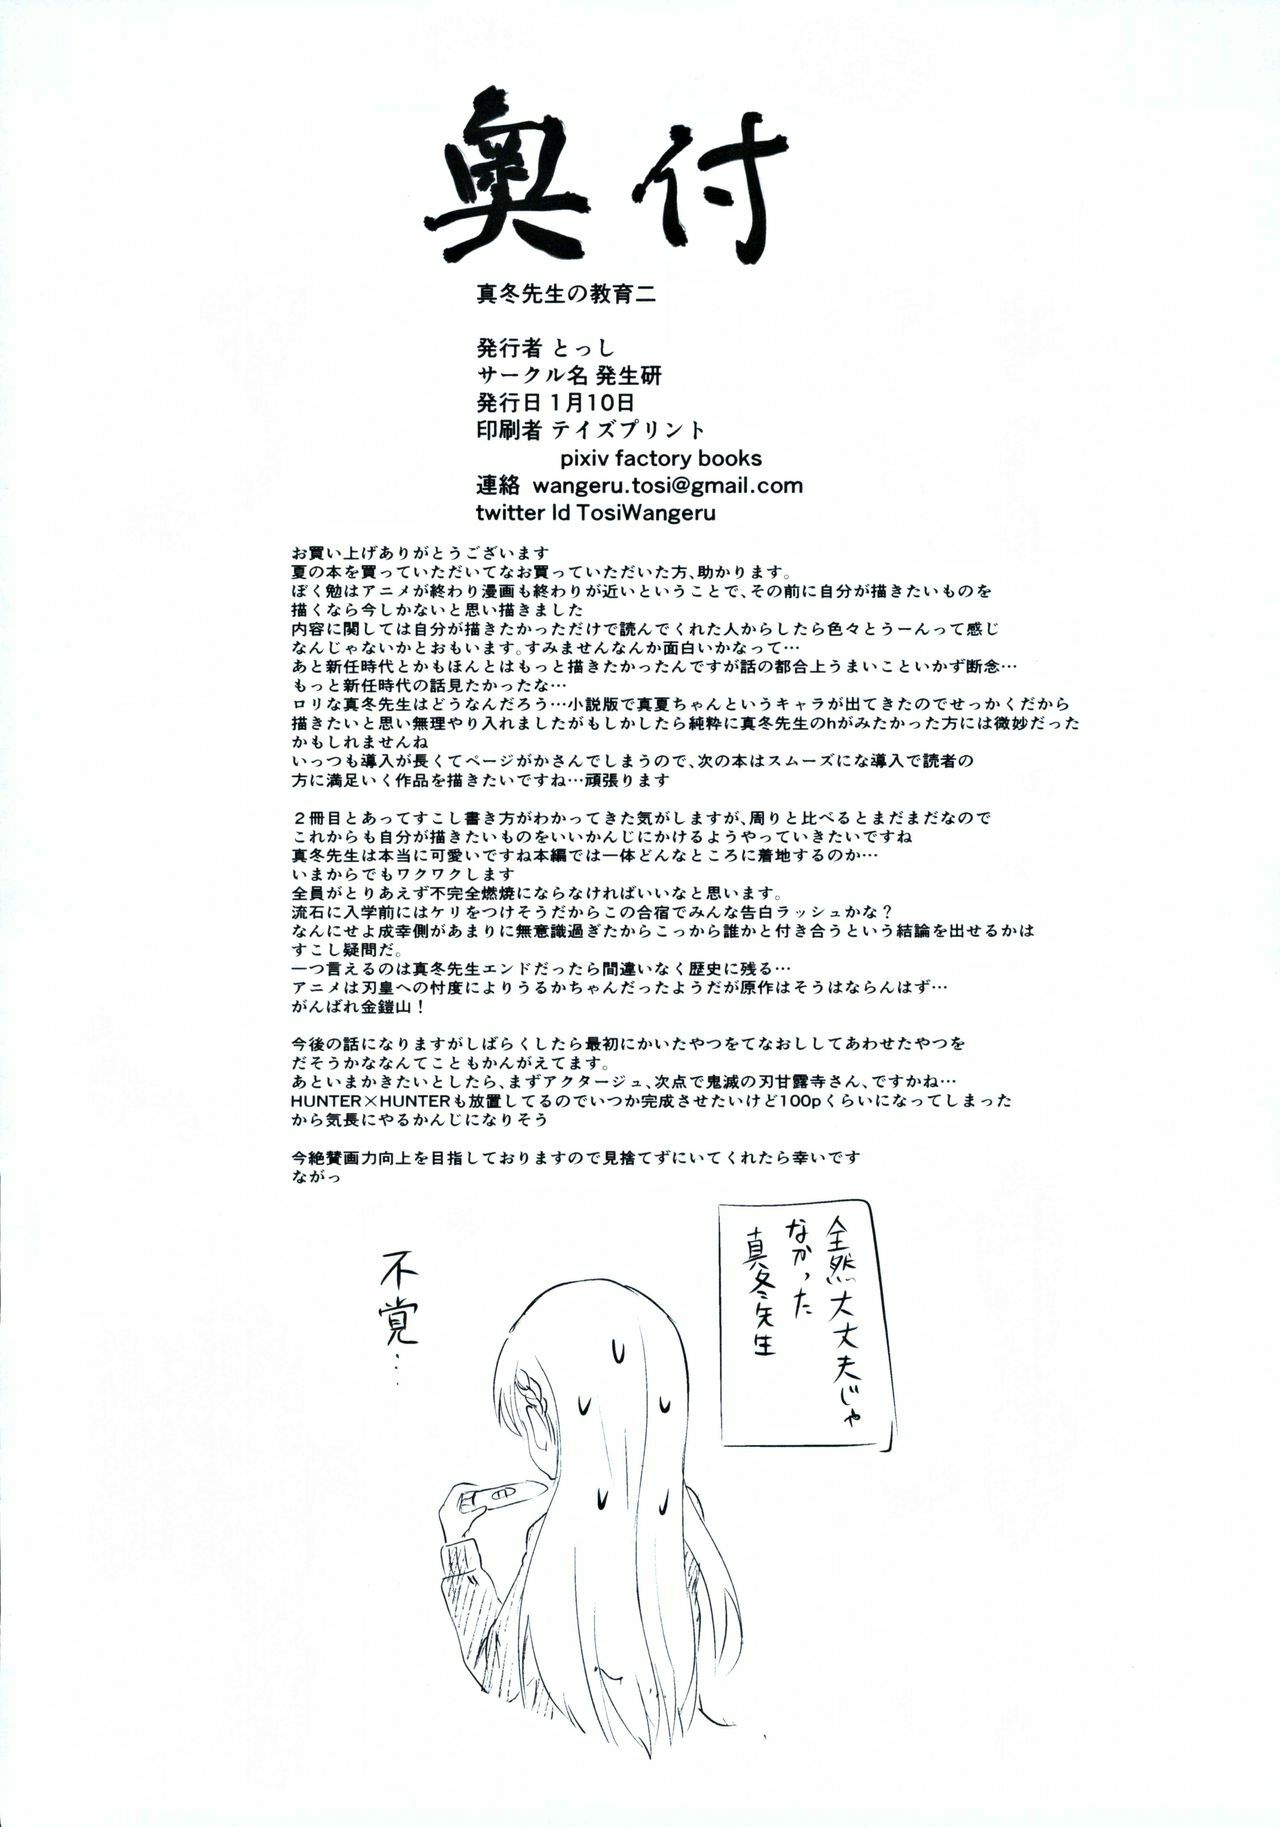 奥付
真冬先生の教育二
発行者 とっし
サークル名 発生研
発行日 1月10日
印刷者 テイズプリント
pixiv factory books
連絡 wangeru.tosi@gmail.com
twitter Id TosiWangeru
お買い上げありがとうございます
夏の本を買っていただいてなお買っていただいた方、助かります。
ぼく勉はアニメが終わり漫画も終わりが近いということで、その前に自分が描きたいものを
描くなら今しかないと思い描きました
内容に関しては自分が描きたかっただけで読んでくれた人からしたら色々とうーんって感じ
なんじゃないかとおもいます。すみませんなんか面白いかなって…
あと新任時代とかもほんとはもっと描きたかったんですが話の都合上うまいこといかず断念…
もっと新任時代の話見たかったな…
ロリな真冬先生はどうなんだろう…小説版で真夏ちゃんというキャラが出てきたのでせっかくだから
描きたいと思い無理やり入れましたがもしかしたら純粋に真冬先生のhがみたかった方には微妙だった
かもしれませんね
いっつも導入が長くてページがかさんでしまうので、次の本はスムーズにな導入で読者の
方に満足いく作品を描きたいですね…頑張ります
２冊目とあってすこし書き方がわかってきた気がしますが、周りと比べるとまだまだなので
これからも自分が描きたいものをいいかんじにかけるようやっていきたいですね
真冬先生は本当に可愛いですね本編では一体どんなところに着地するのか…
いまからでもワクワクします
全員がとりあえず不完全燃焼にならなければいいなと思います。
流石に入学前にはケリをつけそうだからこの合宿でみんな告白ラッシュかな？
なんにせよ成幸側があまりに無意識過ぎたからこっから誰かと付き合うという結論を出せるかは
すこし疑問だ。
一つ言えるのは真冬先生エンドだったら間違いなく歴史に残る…
アニメは刃皇への忖度によりうるかちゃんだったようだが原作はそうはならんはず…
がんばれ金鎧山！
今後の話になりますがしばらくしたら最初にかいたやつをてなおししてあわせたやつを
だそうかななんてこともかんがえてます。
あといまかきたいとしたら、まずアクタージュ、次点で鬼滅の刃甘露寺さん、ですかね…
HUNTER×HUNTERも放置してるのでいつか完成させたいけど100pくらいになってしまった
から気長にやるかんじになりそう
今絶賛画力向上を目指しておりますので見捨てずにいてくれたら幸いです
ながっ
全然大丈夫じゃ
なかった
真冬先生
不覚…